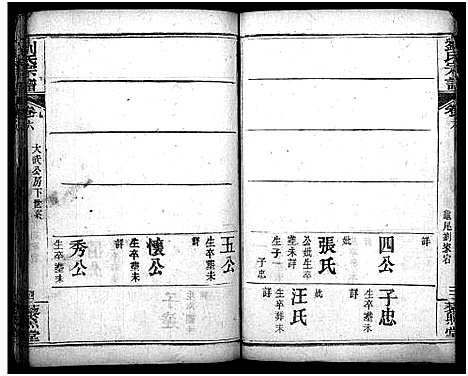 劉氏宗譜
卷六
三
藜照堂
詳
四公 子忠
生卒葬未詳
妣
張氏
公妣生卒葬未詳
生子
子忠
汪氏
妣
生卒葬未詳
五公
生卒葬未詳
懷公
生卒葬未詳
秀公
生卒葬未詳
劉氏宗譜
卷六
大武公房下世系
四
藜照堂